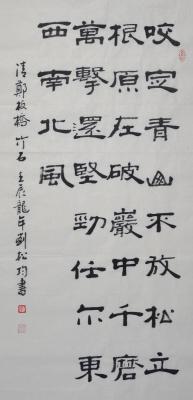 咬定青山不放松立
根原在破巖中千磨
萬擊還堅勁任尔東
西南北風
清鄭板橋竹石壬辰龍年劉松均書